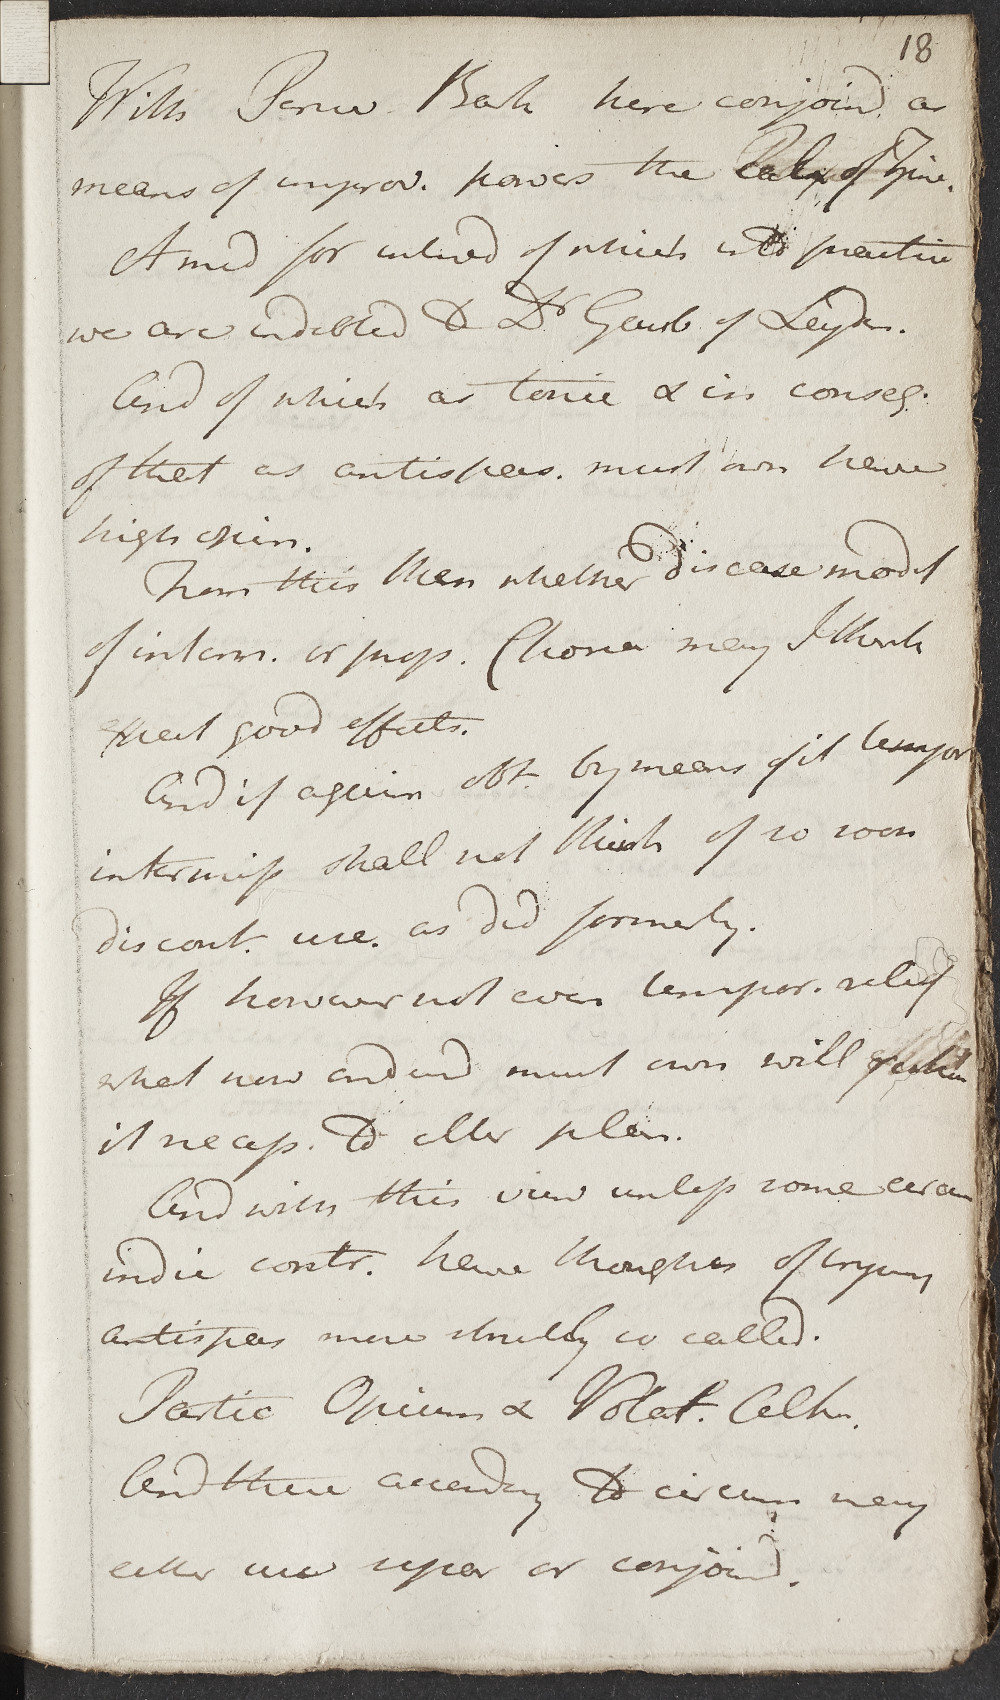 18
With Peruv. Bark here conjoind as
means of improv. powers the Calx of Zinc.
A med for introd of which into practice
we are indebted to Dr Gaub of Leyden.
And of which as tonic & in conseq.
of that as antispas. must own have
high opin.
From this then whether disease model
of interm. or prop. Chorea may I think
expect good effects.
And if again obt. by means of it tempor
intermiss shall not think of so soon
discont. use. as did formerly.
If however not even tempor. relief
what now endend must own will
it necess. to alter plan.
And with this view unless some circum
indic contr. have thoughts of trying
antispas more strictly so called.
Partic Opium & Volat. Alk.
And these according to circum may
either use separ or conjoind.